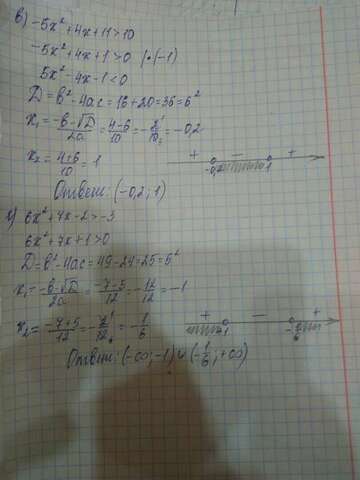 в) -5x²+4x+11>10
-5x²+4x+1>0 |·(-1)
5x²-4x-1<0
D=b²-4ac=16+20=36=6²
x₁=(-b-√D)/2a=(4-6)/10=-2/10=-0,2
x₂=(4+6)/10=1
+ - +
-0,2 1
Ответ: (-0,2; 1)
г) 6x²+7x-2>-3
6x²+7x+1>0
D=b²-4ac=49-24=25=5²
x₁=(-b-√D)/2a=(-7-5)/12=-12/12=-1
x₂=(-7+5)/12=-2/12=-1/6
+ - +
-1 -1/6
Ответ: (-∞; -1)∪(-1/6; +∞)